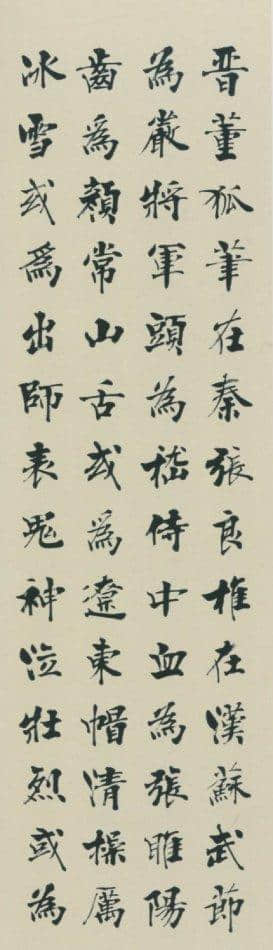 晋董狐筆在秦張良椎在漢蘇武節
為嚴將軍頭為嵇侍中血為張睢陽
齒為顏常山舌或為遼東帽清操厲
冰雪或為出師表鬼神泣壯烈或為